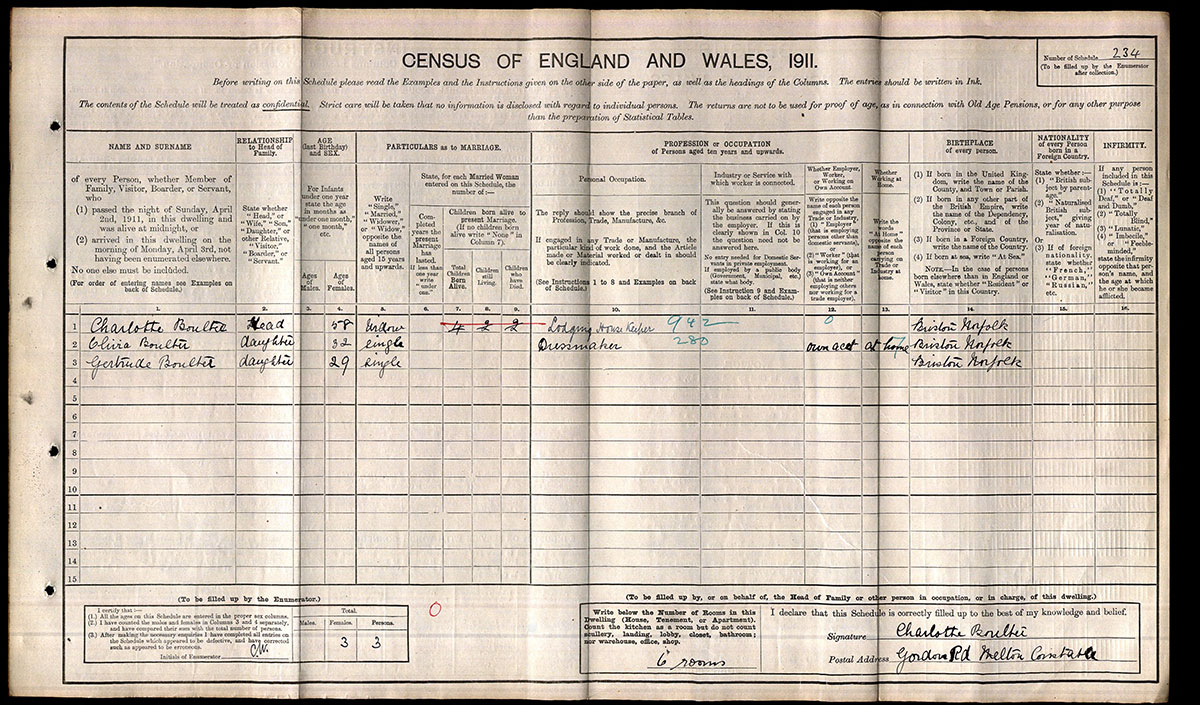 CENSUS OF ENGLAND AND WALES, 1911.
Number of Schedule 234
(To be filled up by the Enumerator
after collection.)
Before writing on this Schedule please read the Examples and the Instructions given on the other side of the paper, as well as the headings of the Columns. The entries should be written in Ink.
The contents of the Schedule will be treated as confidential. Strict care will be taken that no information is disclosed with regard to individual persons. The returns are not to be used for proof of age, as in connection with Old Age Pensions, or for any other purpose
than the preparation of Statistical Tables.
NAME AND SURNAME
of every Person, whether Member of
Family, Visitor, Boarder, or Servant,
who
(1) passed the night of Sunday, April
2nd, 1911, in this dwelling and
was alive at midnight, or
(2) arrived in this dwelling on the
morning of Monday, April 3rd, not
having been enumerated elsewhere.
No one else must be included.
(For order of entering names see Examples on
back of Schedule.)
RELATIONSHIP
to Head of
Family.
State whether
"Head," or
"Wife," "Son,"
"Daughter," or
other Relative,
"Visitor,"
"Boarder," or
"Servant."
AGE
(last Birthday)
and SEX.
For Infants
under one year
state the age
in months as
"under one month,"
"one month,"
etc.
Ages
of
Males.
Ages
of
Females.
PARTICULARS as to MARRIAGE.
Write
"Single,"
"Married,"
"Widower,"
or "Widow,"
opposite the
names of
all persons
aged 15 years
and upwards.
State, for each Married Woman
entered on this Schedule, the
number of:—
Completed
years the
present
Marriage
has
lasted.
If less than
one year
write
"under
one."
Children born alive to
present Marriage.
(If no children born
alive write "None" in
Column 7).
Total
Children
Born
Alive.
Children
still
Living.
Children
who
have
Died.
PROFESSION or OCCUPATION
of Persons aged ten years and upwards.
Personal Occupation.
The reply should show the precise branch of
Profession, Trade, Manufacture, &c.
If engaged in any Trade or Manufacture, the
particular kind of work done, and the Article
made or Material worked or dealt in should
be clearly indicated.
(See Instructions 1 to 8 and Examples on back
of Schedule.)
Industry or Service with
which worker is connected.
This question should gener-
ally be answered by stating
the business carried on by
the employer. If this is
clearly shown in Col. 10
the question need not be
answered here.
No entry needed for Domestic Ser-
vants in private employment.
If employed by a public body
(Government, Municipal, etc.)
state what body.
(See Instruction 9 and Exam-
ples on back of Schedule.)
Whether Employer,
Worker,
or Working on
Own Account.
Write opposite the
name of each person
engaged in any
Trade or Industry,
(1) "Employer"
(that is employing
persons other than
domestic servants),
or
(2) "Worker" (that
is working for an
employer), or
(3) "Own Account"
(that is neither
employing others
nor working for a
trade employer).
Whether
Working at
Home.
Write the
words
"At Home"
opposite the
name of each
person
carrying on
Trade or
Industry at
home.
BIRTHPLACE
of every person.
(1) If born in the United King-
dom, write the name of the
County, and Town or Parish.
(2) If born in any other part of
the British Empire, write
the name of the Dependency,
Colony, etc., and of the
Province or State.
(3) If born in a Foreign Country,
write the name of the Country.
(4) If born at sea, write "At Sea."
NOTE.—In the case of persons
born elsewhere than in England or
Wales, state whether "Resident" or
"Visitor" in this Country.
NATIONALITY
of every Person
born in a
Foreign Country.
State whether:—
(1) "British sub-
ject by parent-
age."
(2) "Naturalised
British sub-
ject," giving
year of natu-
ralisation.
Or
(3) If of foreign
nationality,
state whether
"French,"
"German,"
"Russian,"
etc.
INFIRMITY.
If any person
included in this
Schedule is:—
(1) "Totally
Deaf," or "Deaf
and Dumb,"
(2) "Totally
Blind,"
(3) "Lunatic,"
(4) "Imbecile,"
or "Feeble-
minded,"
state the infirmity
opposite that per-
son's name, and
the age at which
he or she became
afflicted.
1. 2. 3. 4. 5. 6. 7. 8. 9. 10. 11. 12. 13. 14. 15. 16.
1 Charlotte Boulter Head 58 Widow 4 2 2 Lodging House Keeper 942 0 Briston Norfolk
2 Olivia Boulter daughter 32 single Dressmaker 280 own acct at home Briston Norfolk
3 Gertrude Boulter daughter 29 single Briston Norfolk
4
5
6
7
8
9
10
11
12
13
14
15
(To be filled up by the Enumerator.)
I certify that:—
(1.) All the ages on this Schedule are entered in the proper sex columns.
(2.) I have counted the males and females in Columns 3 and 4 separately,
and have compared their sum with the total number of persons.
(3.) After making the necessary enquiries I have completed all entries on
the Schedule which appeared to be defective, and have corrected
such as appeared to be erroneous.
Initials of Enumerator
Total.
Males. Females. Persons.
3 3
0
(To be filled up by, or on behalf of, the Head of Family or other person in occupation, or in charge, of this dwelling.)
Write below the Number of Rooms in this
Dwelling (House, Tenement, or Apartment).
Count the kitchen as a room but do not count
scullery, landing, lobby, closet, bathroom;
nor warehouse, office, shop.
6 rooms
I declare that this Schedule is correctly filled up to the best of my knowledge and belief.
Signature Charlotte Boulter
Postal Address Gordon Rd Melton Constable